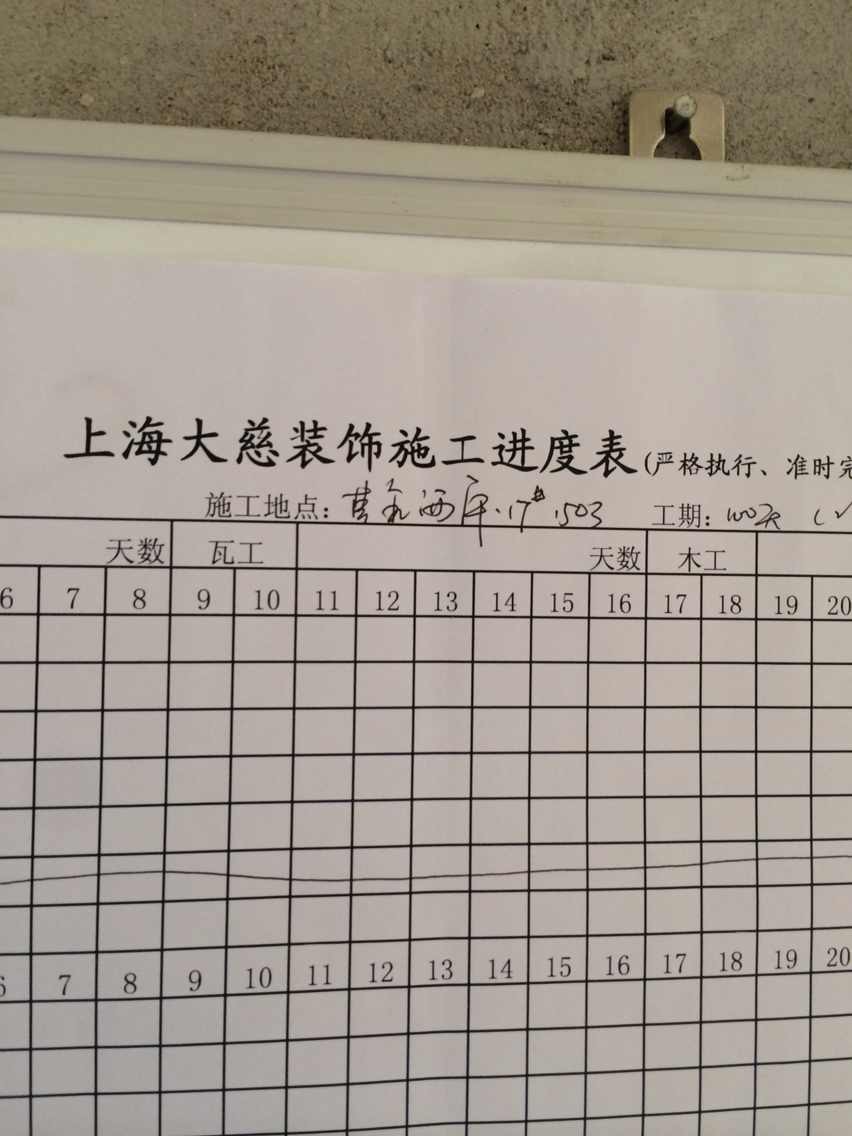 上海大慈装饰施工进度表(严格执行、准时完
施工地点: 17# 1503 工期: 100天
天数 瓦工 天数 木工
6 7 8 9 10 11 12 13 14 15 16 17 18 19 20
6 7 8 9 10 11 12 13 14 15 16 17 18 19 20